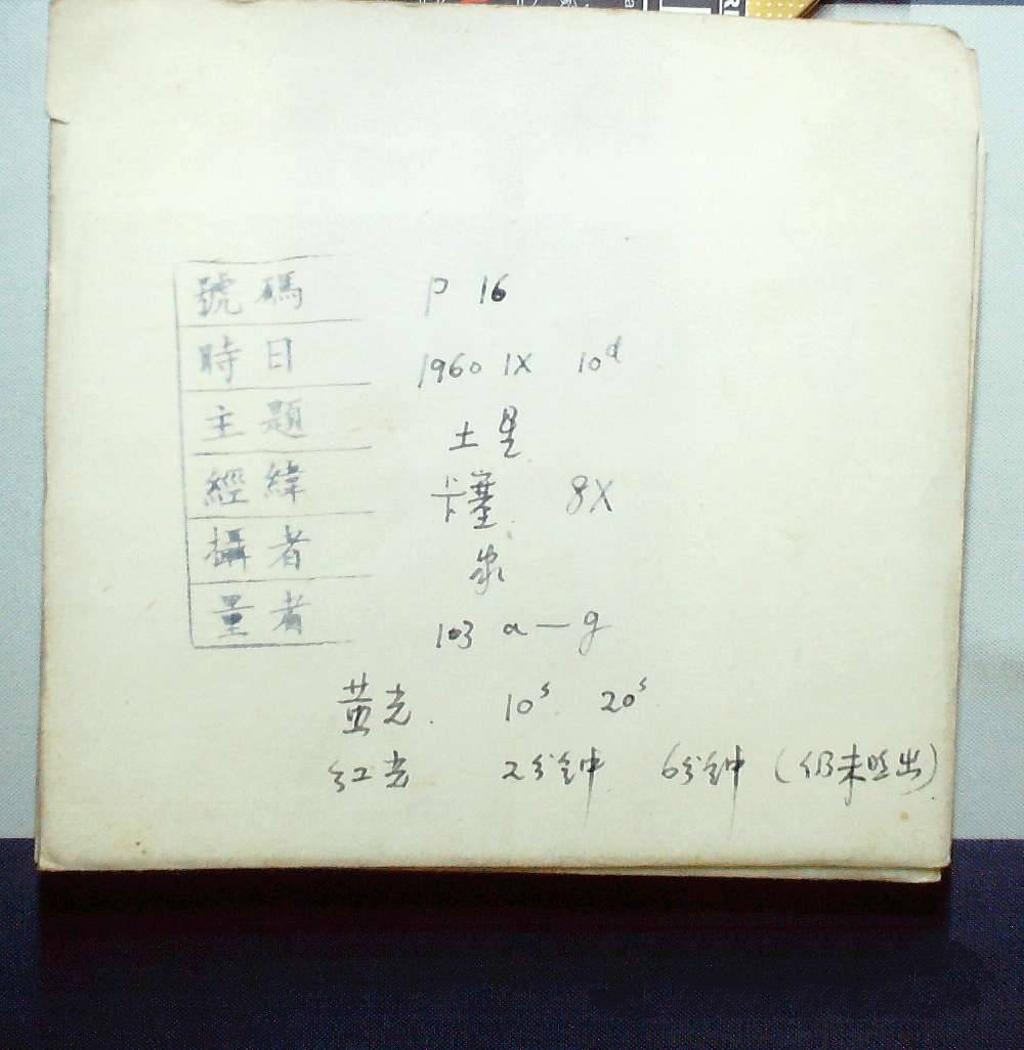 號碼 P 16
時日 1960 IX 10d
主題 土星
經緯 卡塞 8X
攝者
量者 103 a—g
黃光. 10s 20s
红光 2分钟 6分钟 (仍未照出)